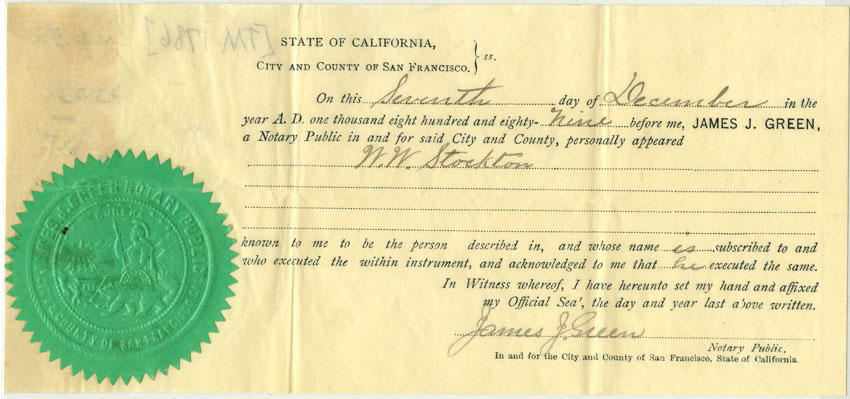 [TM 1786]
STATE OF CALIFORNIA,
CITY AND COUNTY OF SAN FRANCISCO. } ss.
On this Seventh day of December in the
year A. D. one thousand eight hundred and eighty-nine before me, JAMES J. GREEN,
a Notary Public in and for said City and County, personally appeared
W. W. Stockton
known to me to be the person described in, and whose name is subscribed to and
who executed the within instrument, and acknowledged to me that he executed the same.
In Witness whereof, I have hereunto set my hand and affixed
my Official Seal, the day and year last above written.
James J. Green
Notary Public,
In and for the City and County of San Francisco, State of California.
JAMES J. GREEN NOTARY PUBLIC
EUREKA
COUNTY OF SAN FRANCISCO